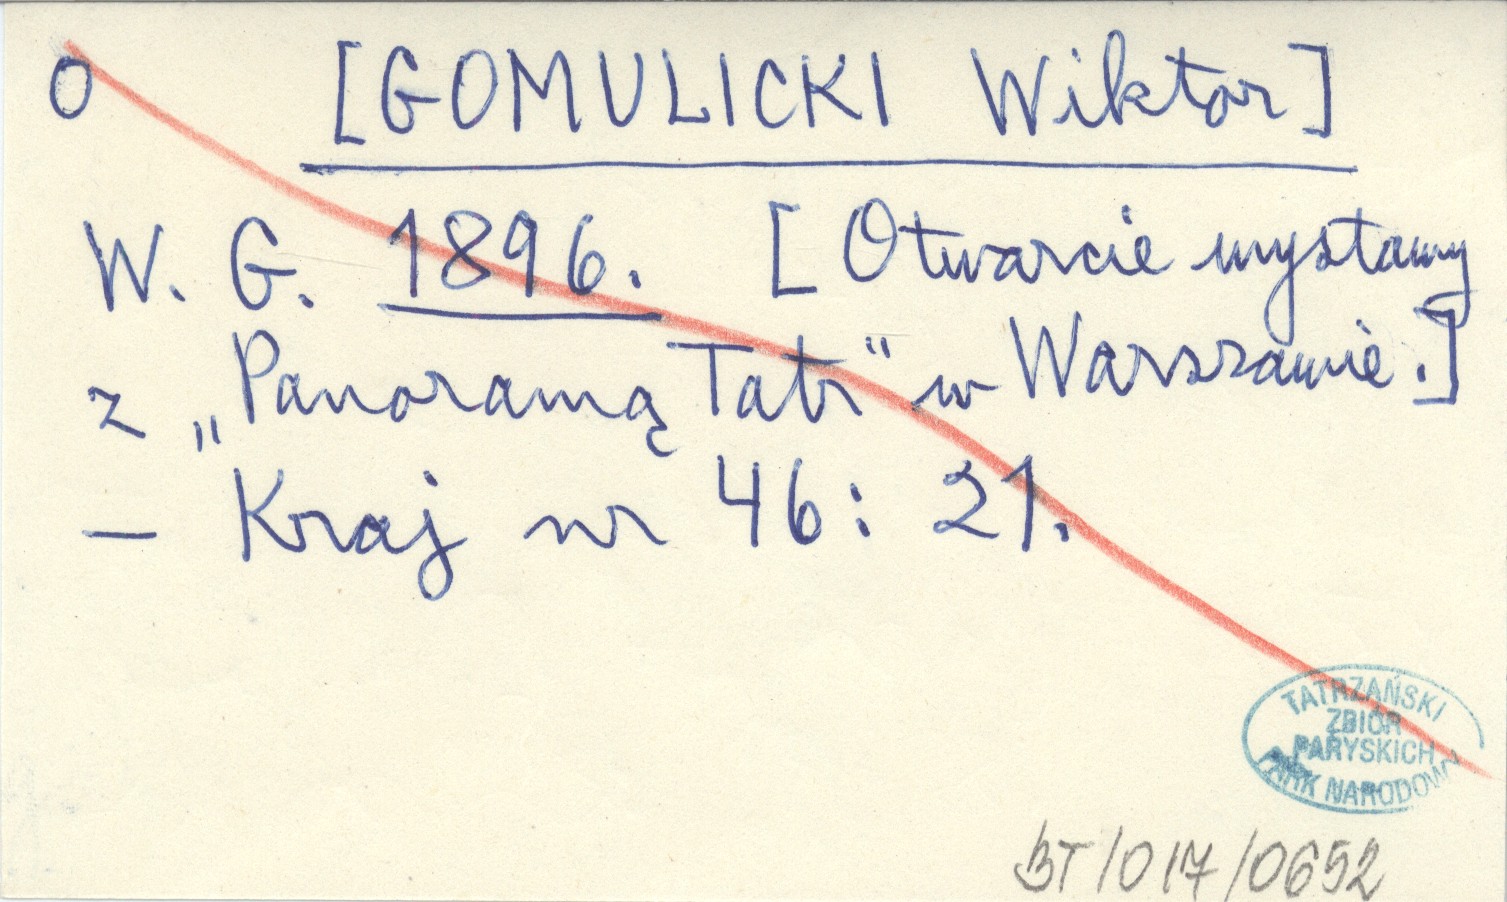 O [GOMULICKI Wiktor]
W. G. 1896. [Otwarcie wystawy
z „Panoramą Tatr" w Warszawie.]
— Kraj nr 46: 21.
TATRZAŃSKI
ZBIÓR
PARYSKICH
PARK NARODOWY
BT/017/0652